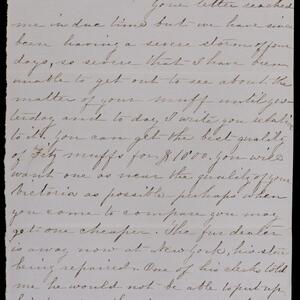 Your letter reached
me in due time but we have since
been having a severe storm of four
days, so severe that I have been
unable to get out to see about the
matter of your muff until yes-
terday and to day I write you relating
to it. You can get the best quality
of Fitz muffs for $18.00. You will
want one as near the quality of your
Victoria as possible perhaps when
you come to compare you may
get one cheaper. The fur dealer
is away now at New York, his store
being repaired. One of his clerks told
me he would not be able to put up